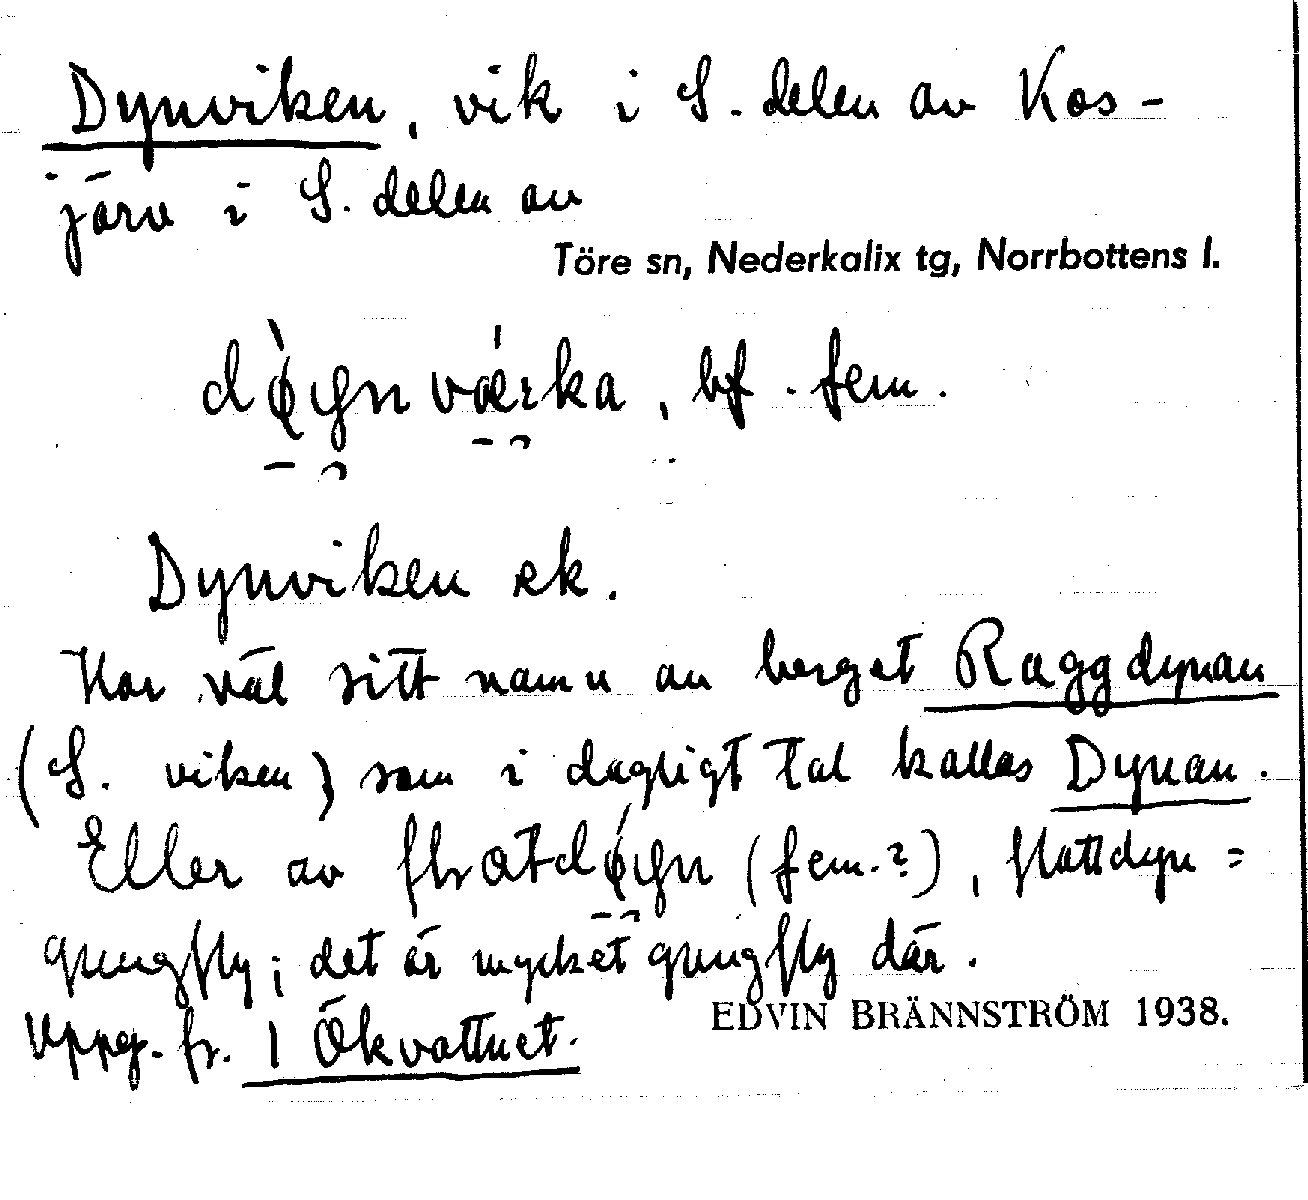 Dynviken, vik i S. delen av Kos-
järv i S. delen av
Töre sn, Nederkalix tg, Norrbottens l.
dø̀ynvǽrka, bf. fem.
Dynviken ek.
Har väl sitt namn av berget Raggdynan
(S. viken) som i dagligt tal kallas Dynan.
Eller av flɷtdǿyn (fem.?), flottdyn =
gungfly; det är mycket gungfly där.
Uppg. fr. 1 Ökvattnet.
EDVIN BRÄNNSTRÖM 1938.